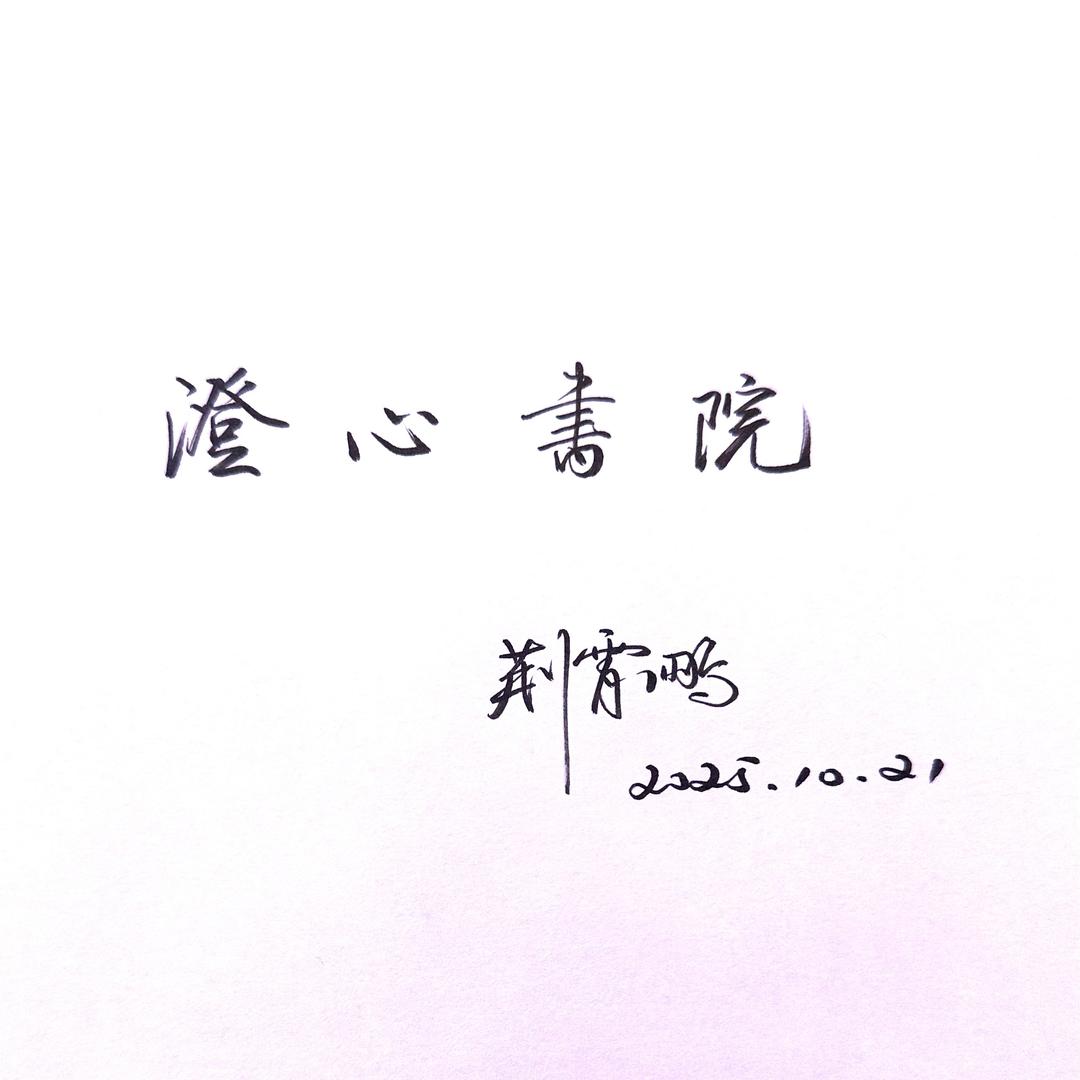 澄心書院
荆霄鹏
2025.10.21